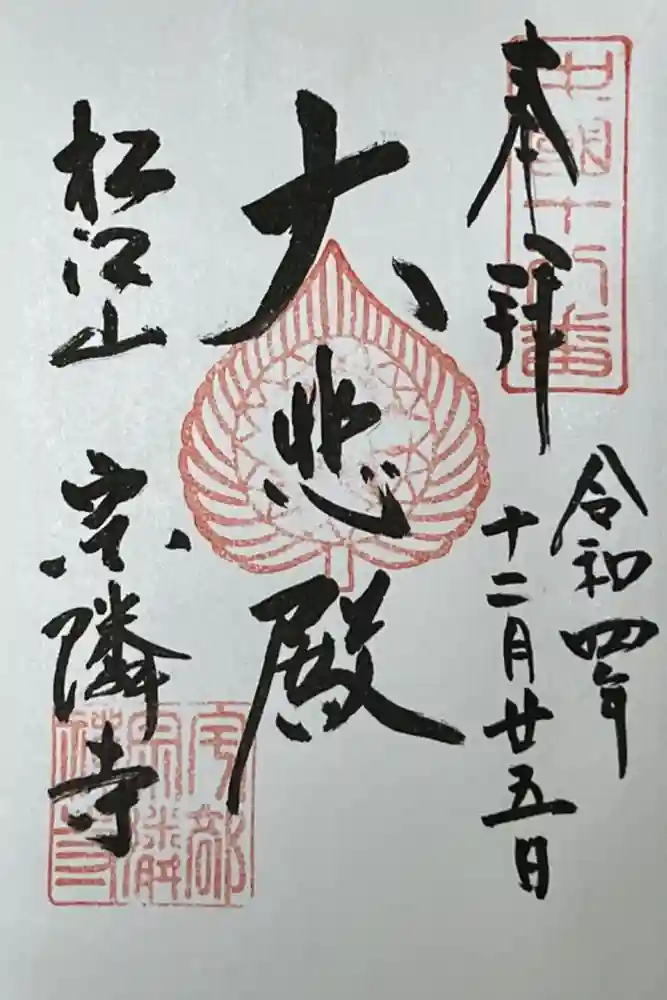 中國十八番
奉拝
令和四年
十二月廿五日
大悲殿
松江山 宗隣寺
宇部
宗隣
禅寺